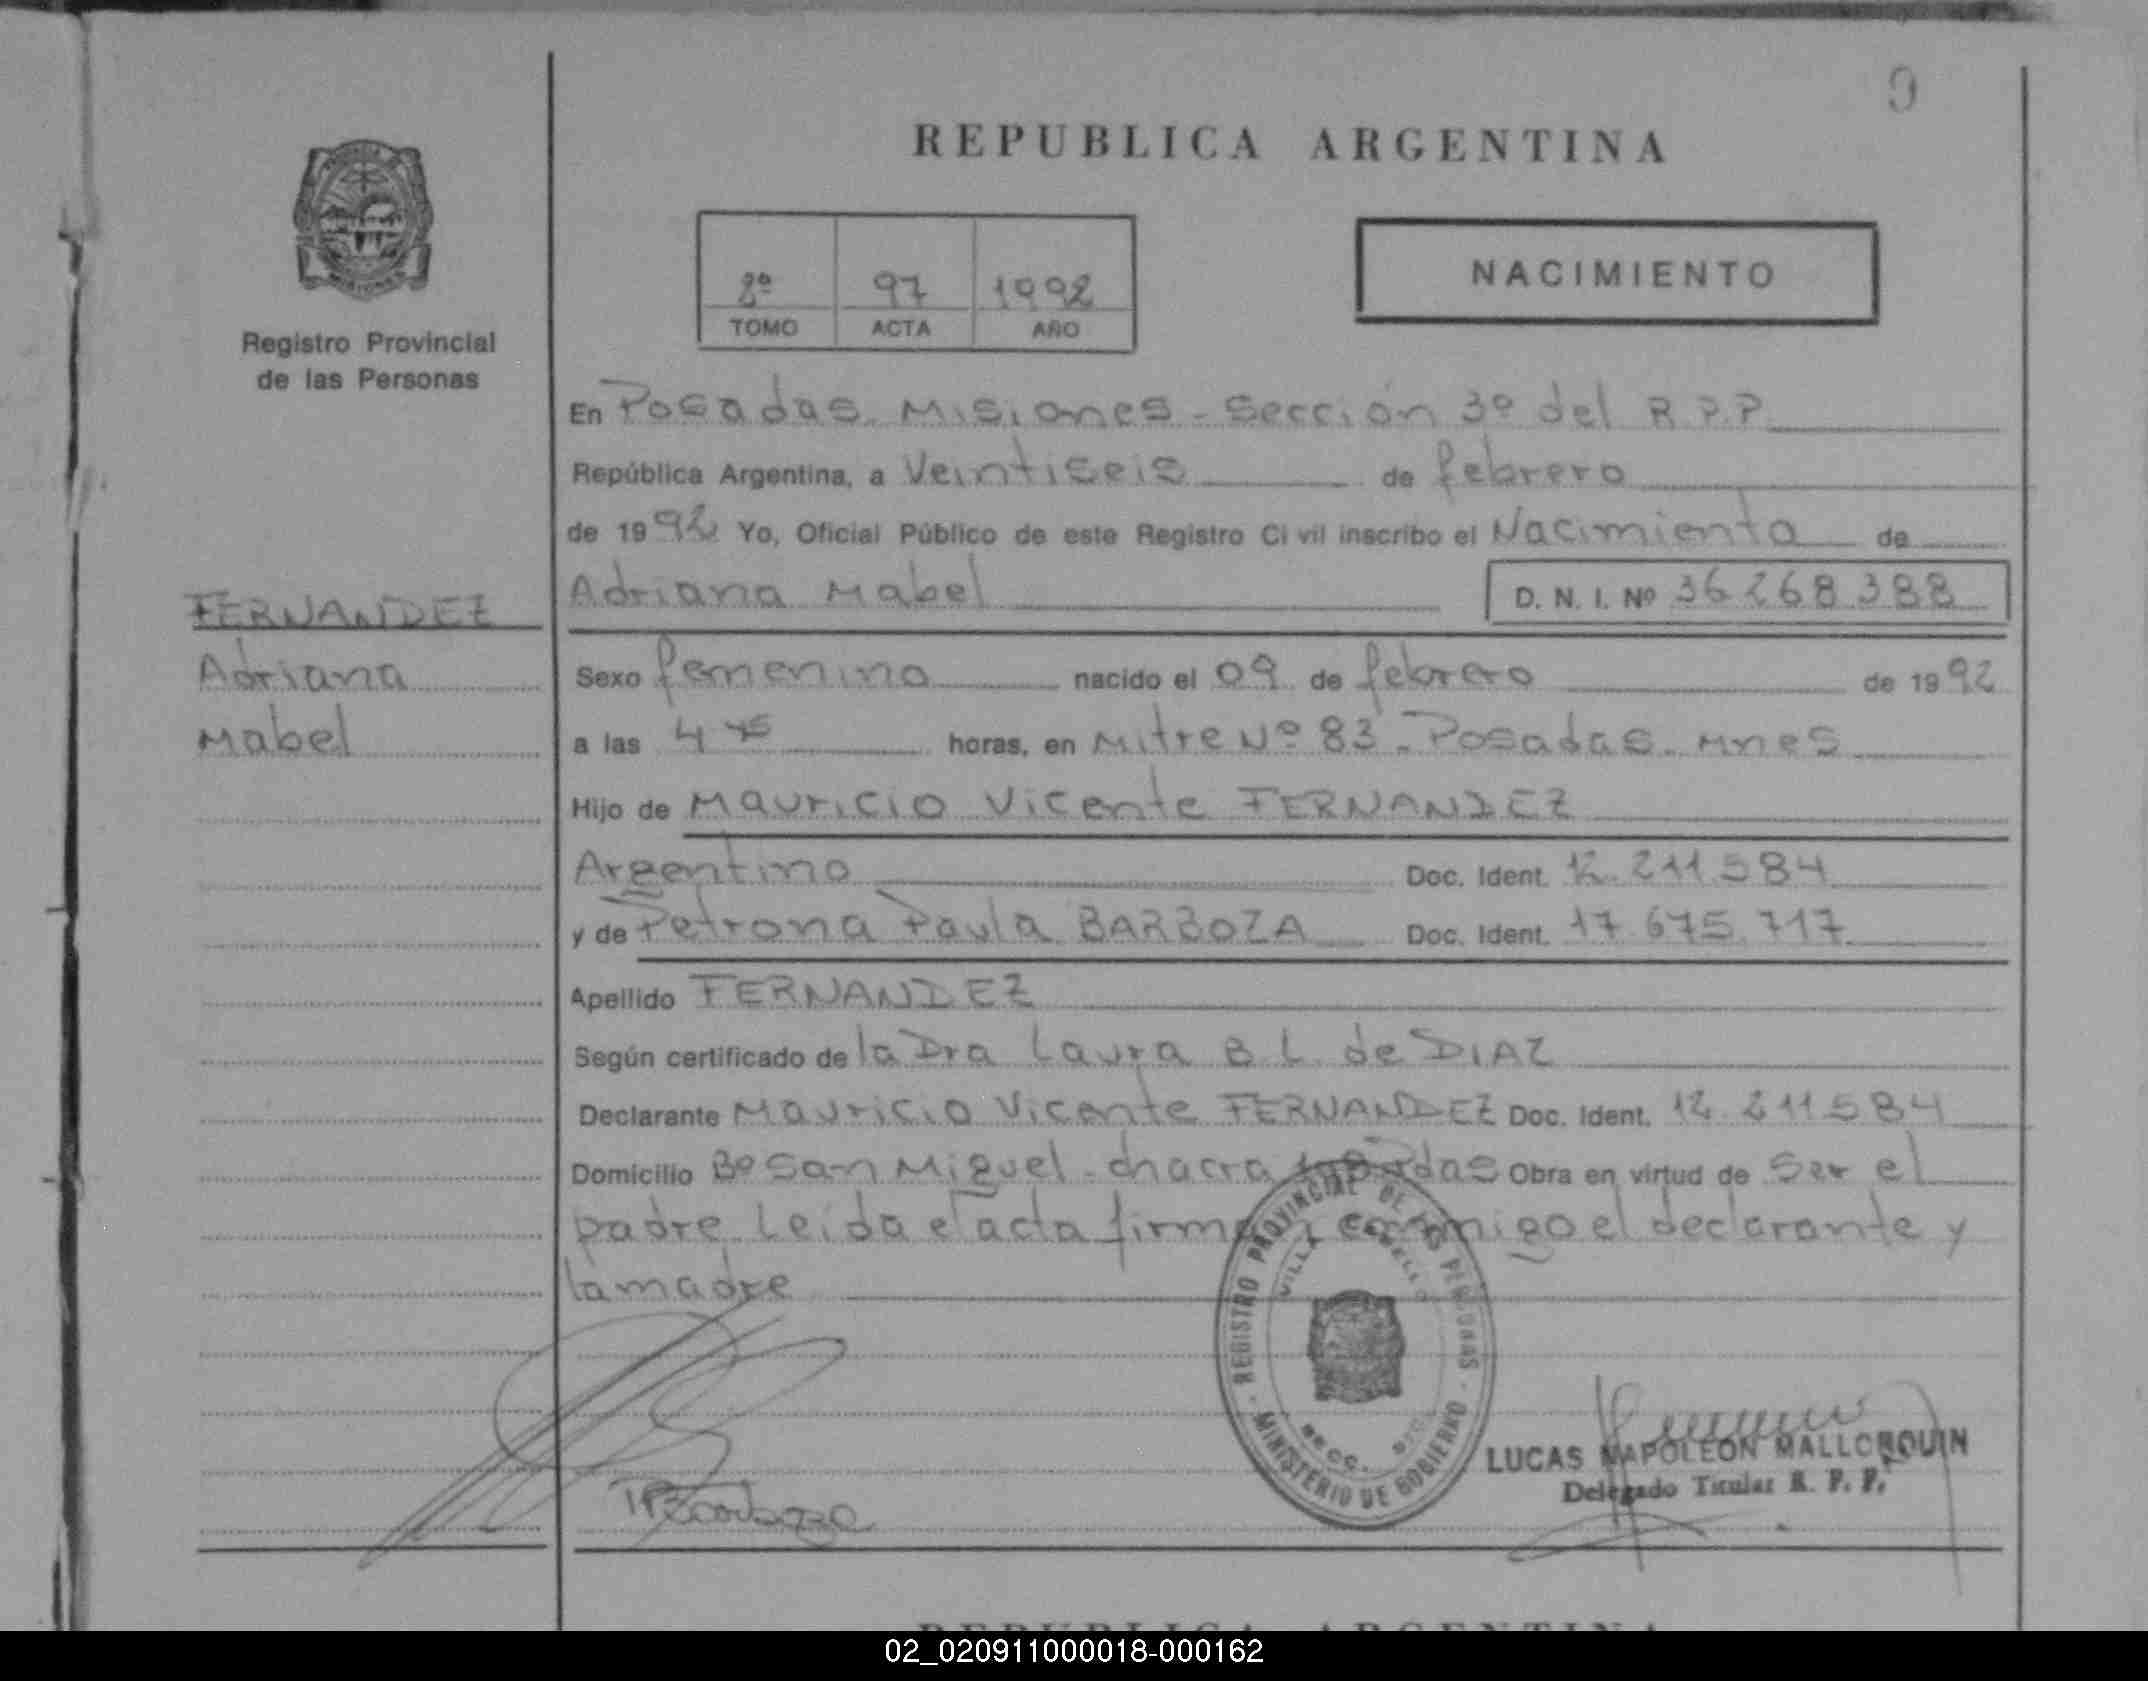 REPUBLICA ARGENTINA
Registro Provincial
de las Personas
2º 97 1992
TOMO ACTA AÑO
NACIMIENTO
En Posadas Misiones - Sección 3º del R.P.P.
República Argentina, a Veintiseis de febrero
de 1992 Yo, Oficial Público de este Registro Civil inscribo el Nacimiento de
Adriana Mabel D. N. I. Nº 36.268.388
FERNANDEZ
Adriana
Mabel
Sexo femenino nacido el 09 de febrero de 1992
a las 4 horas, en Mitre Nº 83 - Posadas - Mnes
Hijo de Mauricio Vicente FERNANDEZ
Argentino Doc. Ident. 12.211.584
y de Petrona Paula BARBOZA Doc. Ident. 17.675.717
Apellido FERNANDEZ
Según certificado de la Dra Laura B. L. de DIAZ
Declarante Mauricio Vicente FERNANDEZ Doc. Ident. 12.211.584
Domicilio Bº San Miguel - chacra Obra en virtud de ser el
padre. Leida el acta firman conmigo el declarante y
la madre
REGISTRO PROVINCIAL DE LAS PERSONAS
VILLA CABELLO
SECC.
MINISTERIO DE GOBIERNO
LUCAS NAPOLEON MALLORQUIN
Delegado Titular R. P. P.
REPUBLICA ARGENTINA
02_020911000018-000162